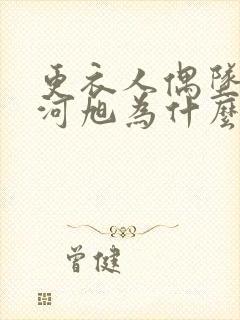 更衣人偶墜
河旭為什麼
曾健